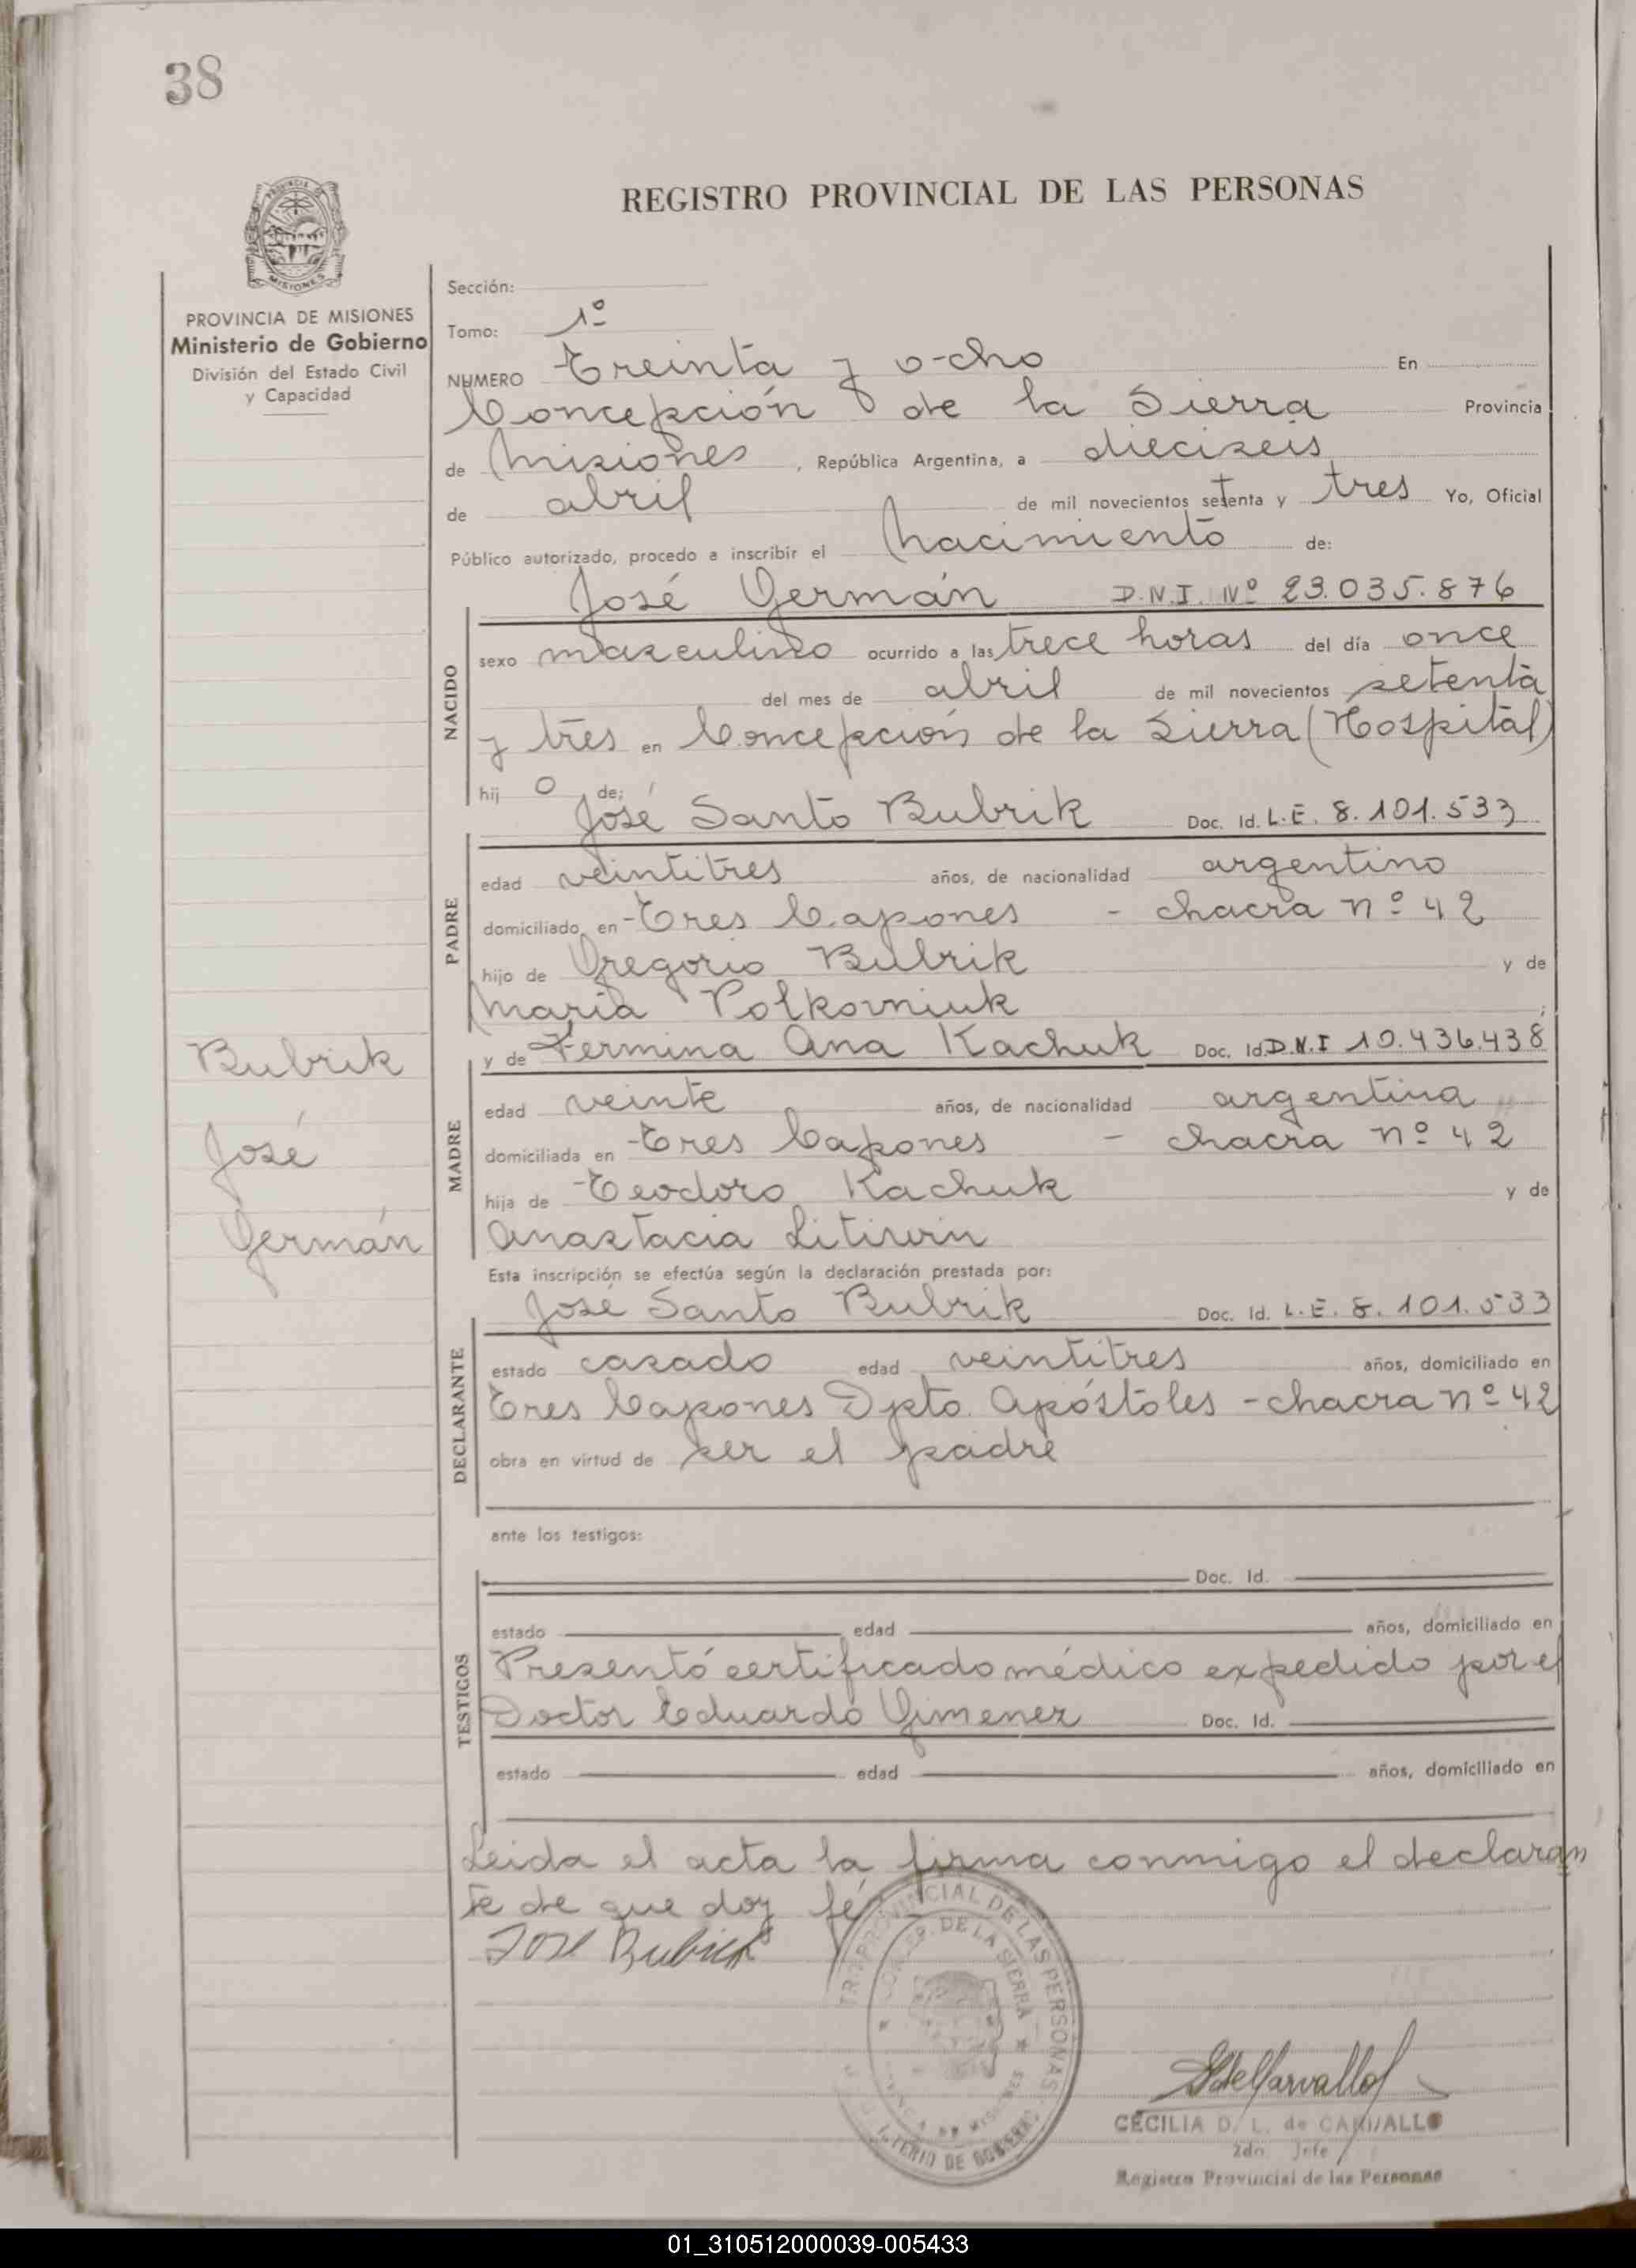 38
REGISTRO PROVINCIAL DE LAS PERSONAS
PROVINCIA DE MISIONES
Ministerio de Gobierno
División del Estado Civil
y Capacidad
Sección:
Tomo: 1º
NUMERO Treinta y ocho En
Concepción de la Sierra Provincia
de Misiones, República Argentina, a dieciseis
de abril de mil novecientos setenta y tres Yo, Oficial
Público autorizado, procedo a inscribir el Nacimiento de:
José Germán D.N.I. Nº 23.035.876
NACIDO
sexo masculino ocurrido a las trece horas del día once
del mes de abril de mil novecientos setenta
y tres en Concepción de la Sierra (Hospital)
hij o de;
José Santo Bubrik Doc. Id. L.E. 8.101.533
PADRE
edad veintitres años, de nacionalidad argentino
domiciliado en Tres Capones - chacra nº 42
hijo de Gregorio Bubrik y de
María Polkovniuk;
y de Fermina Ana Kachuk Doc. Id. D.N.I 10.436.438
MADRE
edad veinte años, de nacionalidad argentina
domiciliada en Tres Capones - chacra nº 42
hija de Teodoro Kachuk y de
Anastacia Litiwin
Bubrik
José
Germán
Esta inscripción se efectúa según la declaración prestada por:
José Santo Bubrik Doc. Id. L.E. 8.101.533
DECLARANTE
estado casado edad veintitres años, domiciliado en
Tres Capones Dpto. Apóstoles - chacra nº 42
obra en virtud de ser el padre
ante los testigos:
Doc. Id.
TESTIGOS
estado edad años, domiciliado en
Presentó certificado médico expedido por el
Doctor Eduardo Gimenez Doc. Id.
estado edad años, domiciliado en
Leida el acta la firma conmigo el declaran
te de que doy fé
José Bubrik
PROVINCIAL DE LAS PERSONAS
DE LA SIERRA
DE MISIONES
DE GOBIERNO
CECILIA D. L. de CARVALLO
2do. Jefe
Registro Provincial de las Personas
01_310512000039-005433